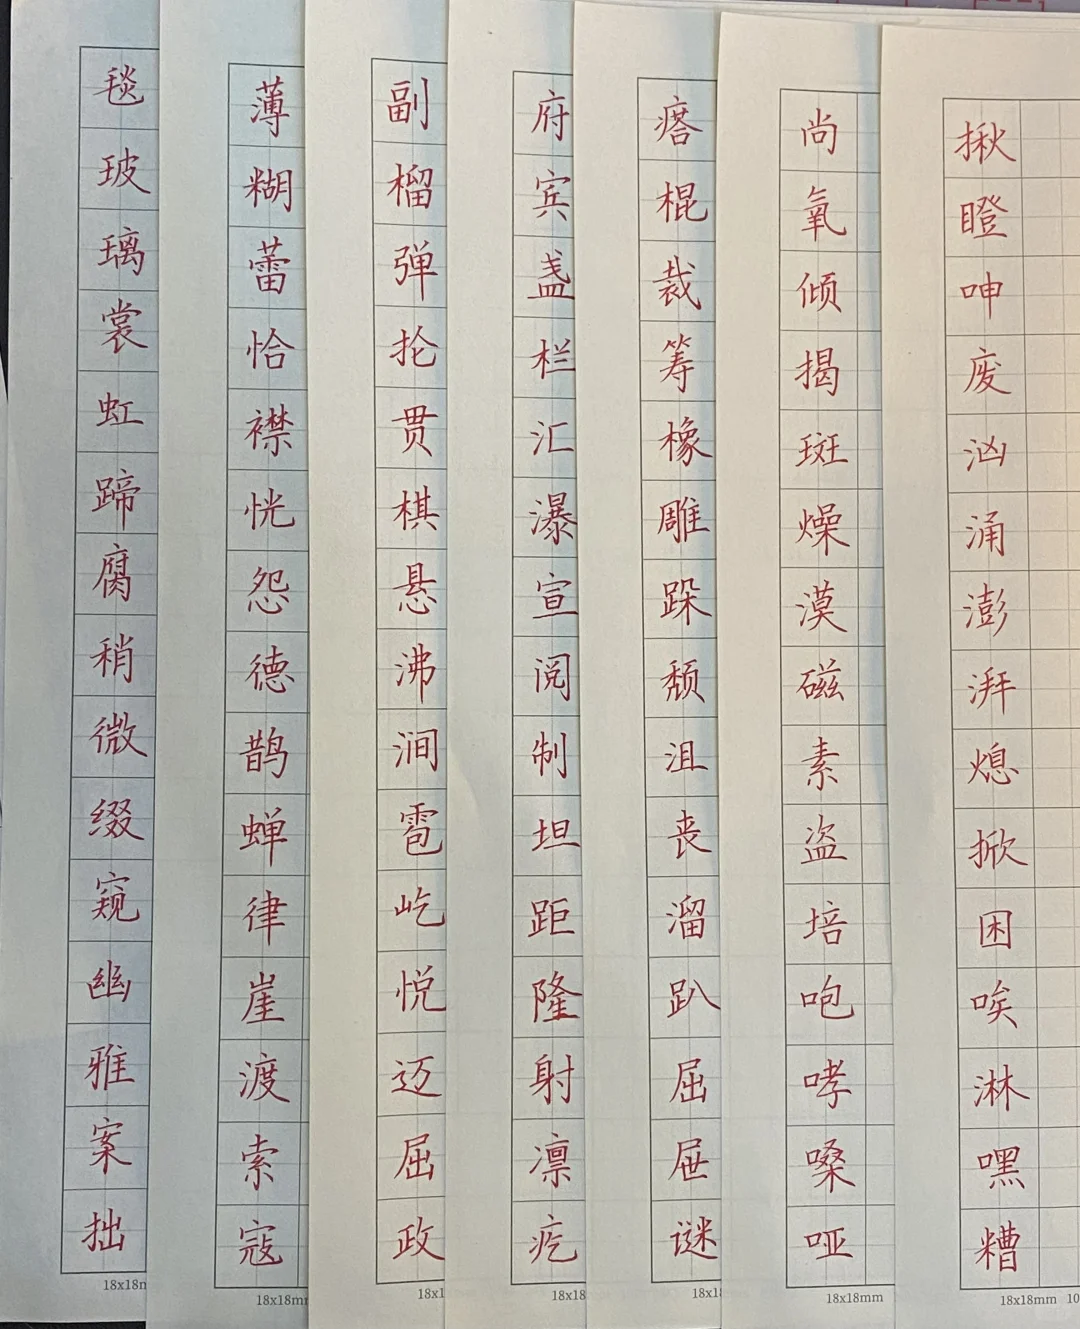 毯
玻
璃
裳
虹
蹄
腐
稍
微
缀
窥
幽
雅
案
拙
18x18m
薄
糊
蕾
恰
襟
恍
怨
德
鹊
蝉
律
崖
渡
索
寇
18x18mm
副
榴
弹
抡
贯
棋
悬
沸
涧
雹
屹
悦
迈
屈
政
18x1
府
宾
盏
栏
汇
瀑
宣
阅
制
坦
距
隆
射
凛
疙
18x18
瘩
棍
裁
筹
橡
雕
跺
颓
沮
丧
溜
趴
屈
屉
谜
18x18
尚
氧
倾
揭
斑
燥
漠
磁
素
盗
培
咆
哮
嗓
哑
18x18mm
揪
瞪
呻
废
汹
涌
澎
湃
熄
掀
困
唉
淋
嘿
糟
18x18mm 10